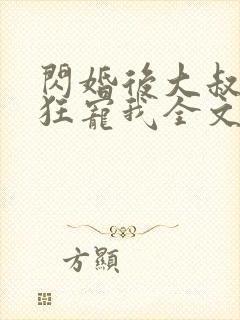 閃婚後大叔
狂寵我全文
方顯